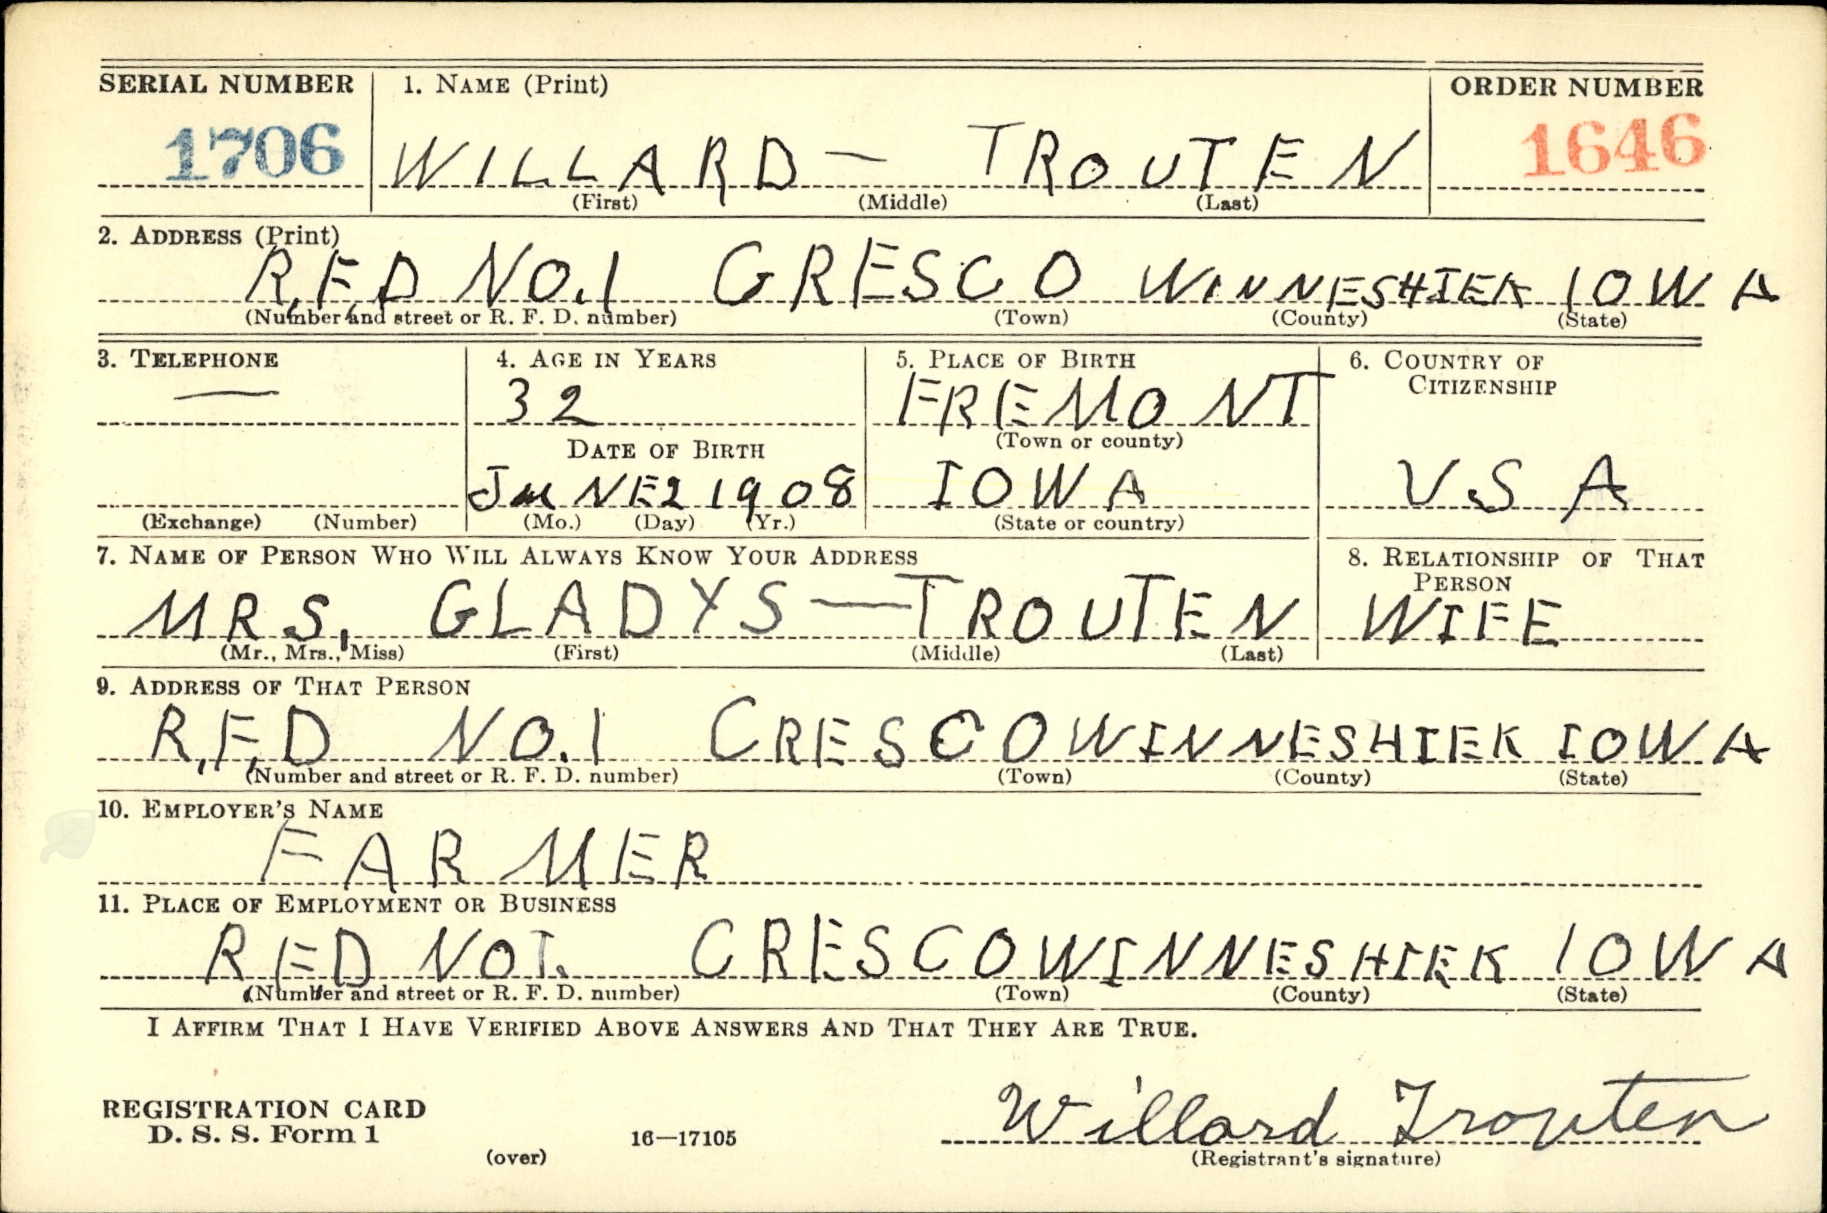 SERIAL NUMBER 1. NAME (Print) ORDER NUMBER
1706 WILLARD — TROUTEN 1646
(First) (Middle) (Last)
2. ADDRESS (Print)
R.F.D NO.1 CRESCO WINNESHIEK IOWA
(Number and street or R. F. D. number) (Town) (County) (State)
3. TELEPHONE 4. AGE IN YEARS 5. PLACE OF BIRTH 6. COUNTRY OF
CITIZENSHIP
— 32 FREMONT
(Town or county)
DATE OF BIRTH
JUNE 2 1908 IOWA U S A
(Exchange) (Number) (Mo.) (Day) (Yr.) (State or country)
7. NAME OF PERSON WHO WILL ALWAYS KNOW YOUR ADDRESS 8. RELATIONSHIP OF THAT
PERSON
MRS. GLADYS — TROUTEN WIFE
(Mr., Mrs., Miss) (First) (Middle) (Last)
9. ADDRESS OF THAT PERSON
R.F.D NO.1 CRESCO WINNESHIEK IOWA
(Number and street or R. F. D. number) (Town) (County) (State)
10. EMPLOYER'S NAME
FARMER
11. PLACE OF EMPLOYMENT OR BUSINESS
R F D NO 1. CRESCO WINNESHIEK IOWA
(Number and street or R. F. D. number) (Town) (County) (State)
I AFFIRM THAT I HAVE VERIFIED ABOVE ANSWERS AND THAT THEY ARE TRUE.
REGISTRATION CARD Willard Trouten
D. S. S. Form 1 16—17105
(over) (Registrant's signature)